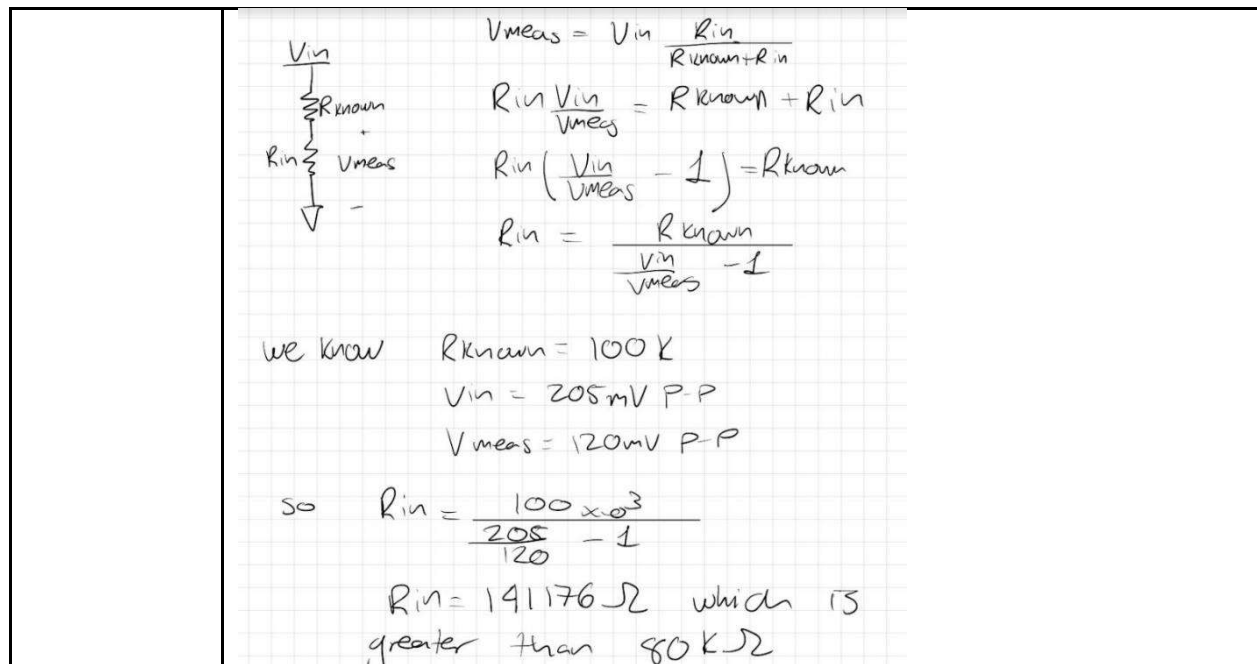 Vmeas = Vin Rin / Rknown+Rin
Vin
Rknown
+
Rin Vmeas
-
Rin Vin/Vmeas = Rknown + Rin
Rin ( Vin/Vmeas - 1 ) = Rknown
Rin = Rknown / Vin/Vmeas - 1
we know Rknown = 100 K
Vin = 205mV P-P
Vmeas = 120mV P-P
so Rin = 100 x10^3 / 205/120 - 1
Rin = 141176 Ω which is
greater than 80 KΩ